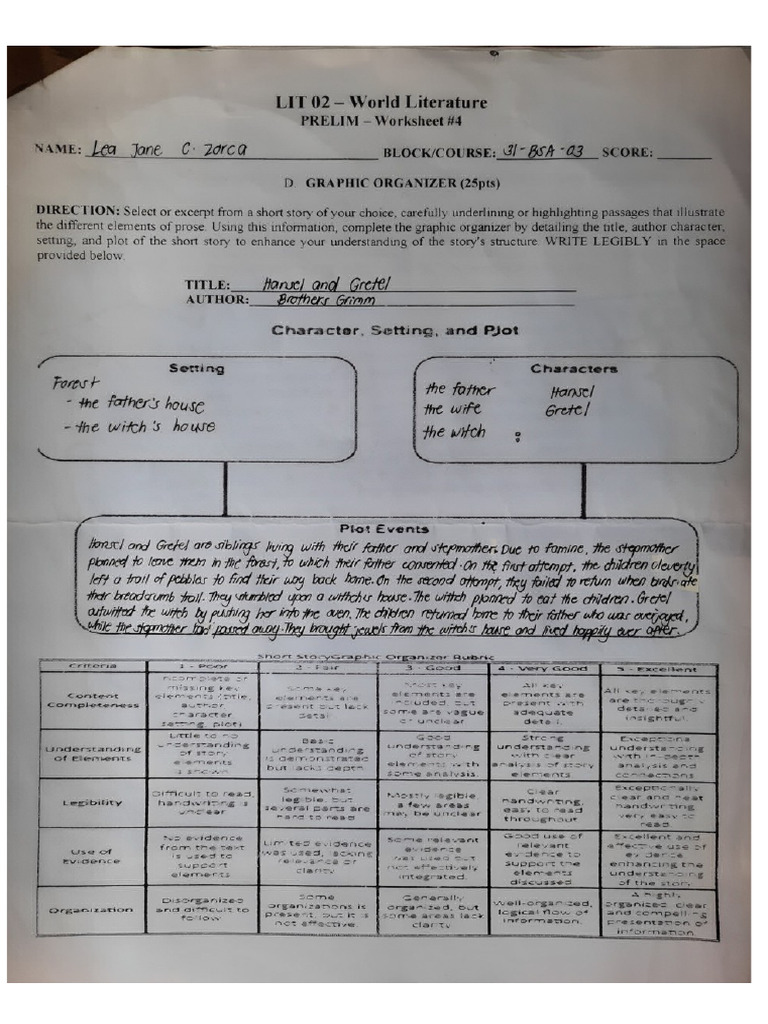 LIT 02 – World Literature
PRELIM – Worksheet #4
NAME: Lea Jane C. Zorca BLOCK/COURSE: 31-BSA-03 SCORE:
D. GRAPHIC ORGANIZER (25pts)
DIRECTION: Select or excerpt from a short story of your choice, carefully underlining or highlighting passages that illustrate
the different elements of prose. Using this information, complete the graphic organizer by detailing the title, author character,
setting, and plot of the short story to enhance your understanding of the story's structure. WRITE LEGIBLY in the space
provided below.
TITLE: Hansel and Gretel
AUTHOR: Brothers Grimm
Character, Setting, and Plot
Setting
Forest
- the father's house
- the witch's house
Characters
the father Hansel
the wife Gretel
the witch
Plot Events
Hansel and Gretel are siblings living with their father and stepmother. Due to famine, the stepmother
planned to leave them in the forest, to which their father consented. On the first attempt, the children cleverly
left a trail of pebbles to find their way back home. On the second attempt, they failed to return when birds ate
their breadcrumb trail. They stumbled upon a witch's house. The witch planned to eat the children. Gretel
outwitted the witch by pushing her into the oven. The children returned home to their father who was overjoyed,
while the stepmother had passed away. They brought jewels from the witch's house and lived happily ever after.
Short Story Graphic Organizer Rubric
Criteria 1 - Poor 2 - Fair 3 - Good 4 - Very Good 5 - Excellent
Content Completeness
Incomplete or missing key elements (title, author, character setting, plot)
Some key elements are present but lack detail
Most key elements are included, but some are vague or unclear
All key elements are present with adequate detail.
All key elements are thoroughly detailed and insightful.
Understanding of Elements
Little to no understanding of story elements is shown
Basic understanding is demonstrated but lacks depth
Good understanding of story elements with some analysis.
Strong understanding with clear analysis of story elements
Exceptional understanding with in-depth analysis and connections
Legibility
Difficult to read, handwriting is unclear
Somewhat legible, but several parts are hard to read
Mostly legible, a few areas may be unclear
Clear handwriting, easy to read throughout
Exceptionally clear and neat handwriting very easy to read
Use of Evidence
No evidence from the text is used to support elements
Limited evidence was used, lacking relevance or clarity
Some relevant evidence was used but not effectively integrated.
Good use of relevant evidence to support the elements discussed
Excellent and effective use of evidence enhancing the understanding of the story
Organization
Disorganized and difficult to follow
Some organizations is present, but it is not effective.
Generally organized, but some areas lack clarity
Well-organized, logical flow of information.
A highly organized, clear and compelling presentation of information